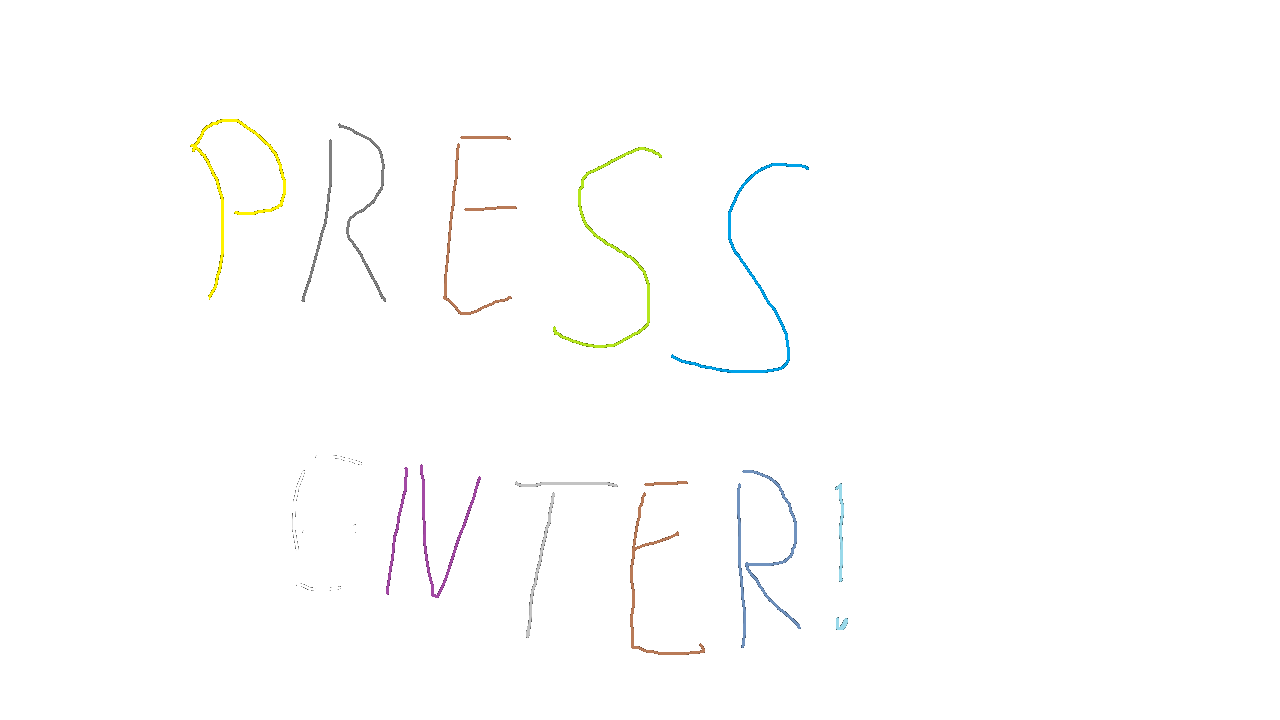 PRESS
ENTER!